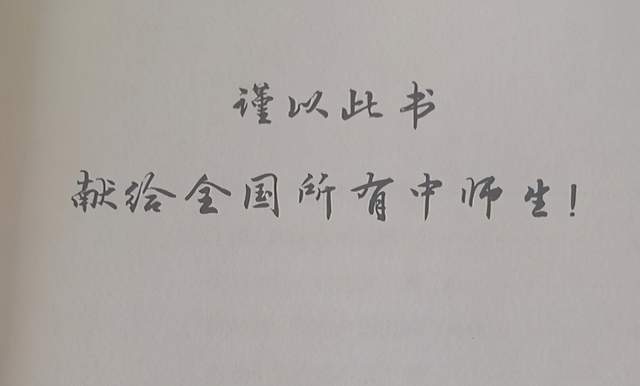 谨以此书
献给全国所有中师生!